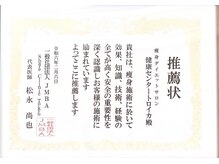 推薦状
痩身ダイエットサロン
健康センタートロイカ殿
貴社は、痩身施術に於いて
効果、知識、技術、経験の
全てが高く安全の重要性を
深く認識しお客様の施術に
励まれています
よってここに推薦します
令和六年二月六日
一般社団法人JMBA
代表医師 松永 尚也